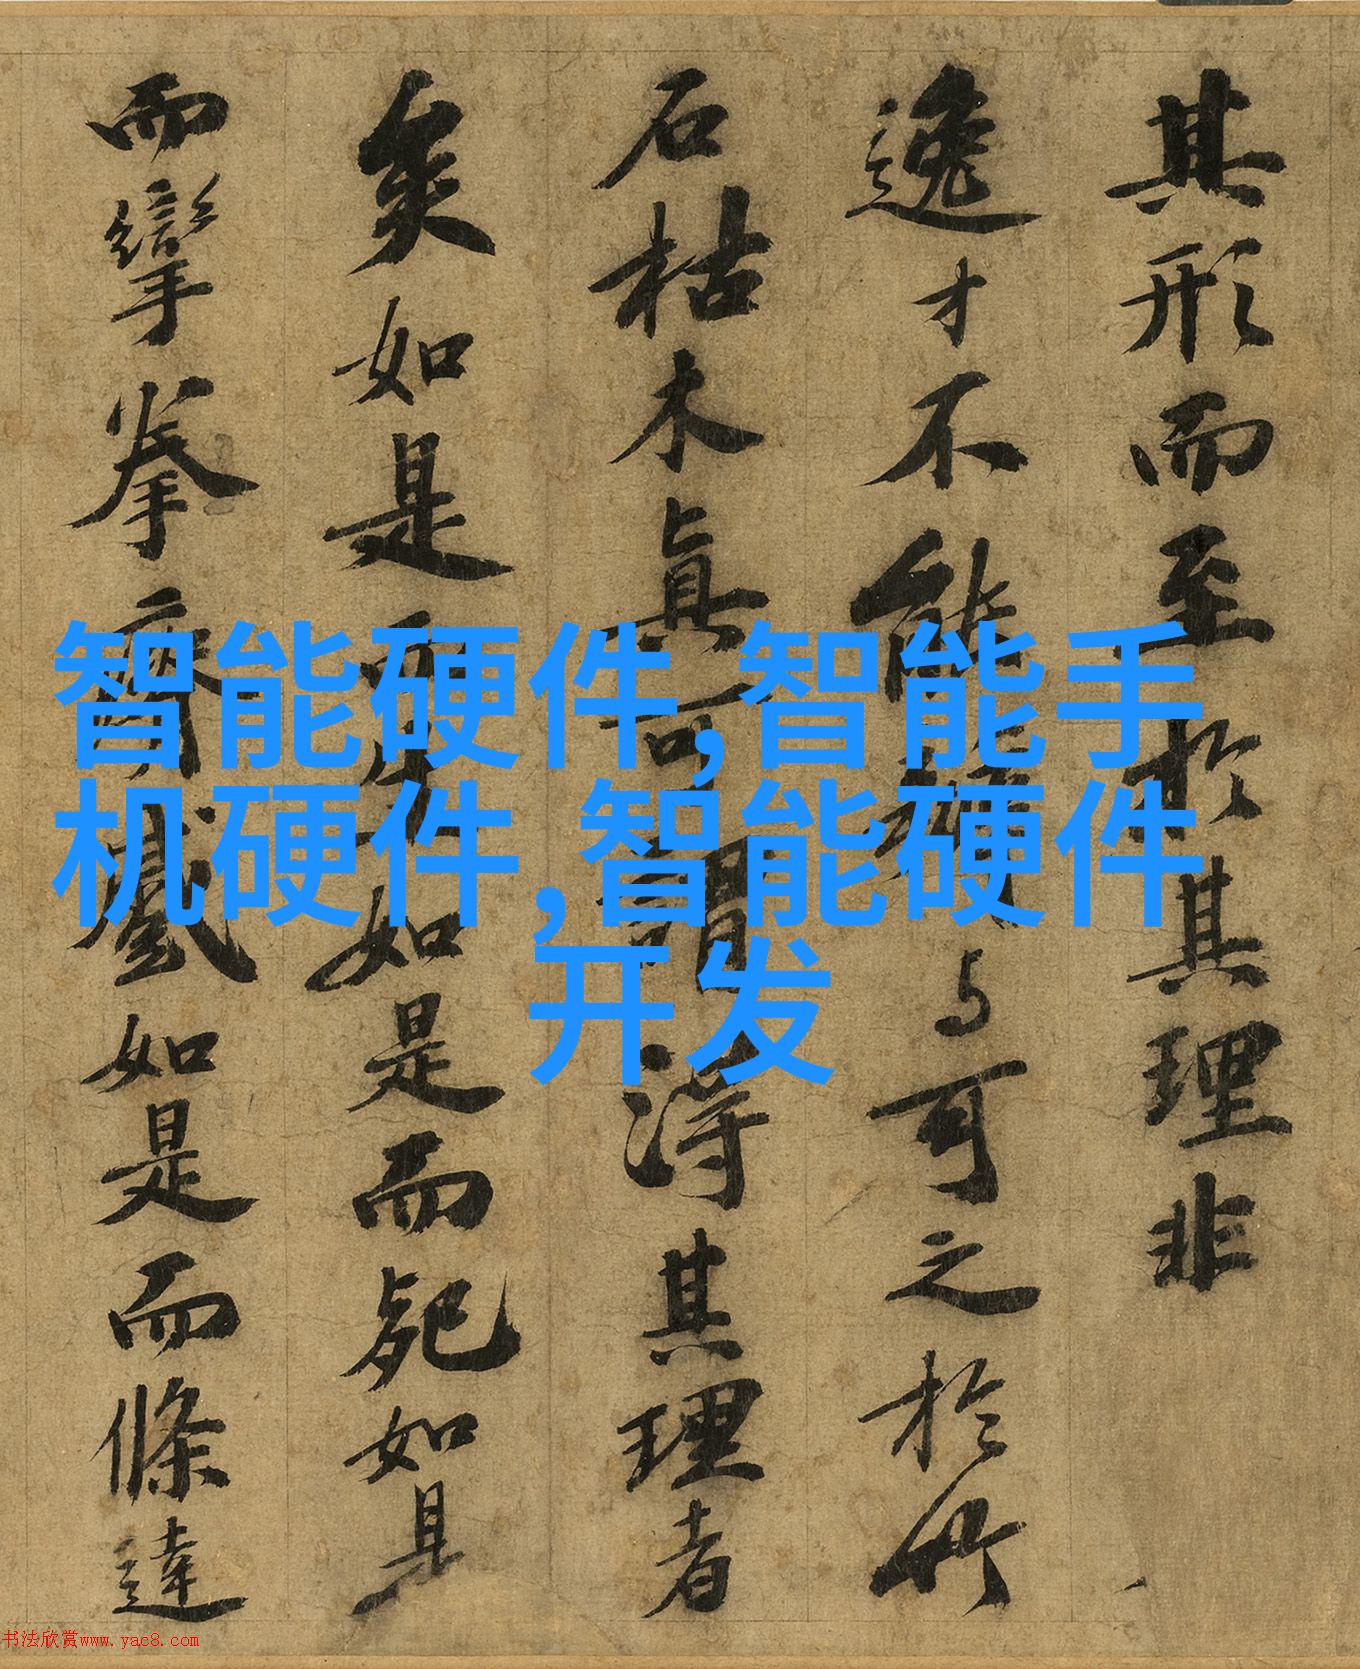 其形而至於其理非
逸才不能与可之於竹
石枯木真可謂得其理者
矣如是而生如是而死如是
而攣拳瘠蹙如是而條達
智能硬件,智能手
机硬件,智能硬件
开发
书法欣赏www.yac8.com